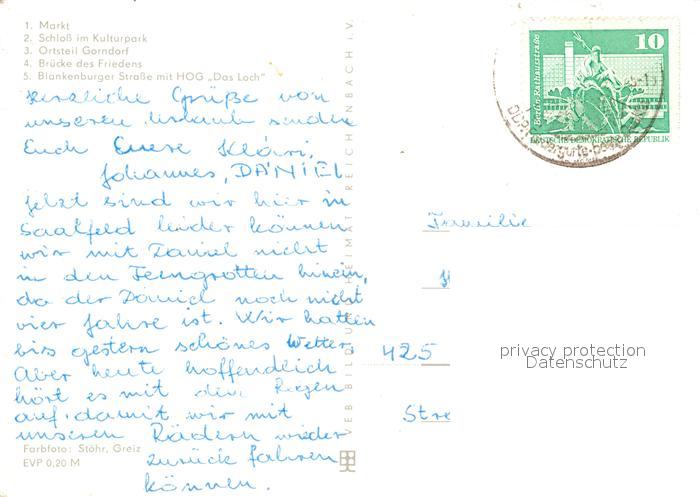 1. Markt
2. Schloß im Kulturpark
3. Ortsteil Gorndorf
4. Brücke des Friedens
5. Blankenburger Straße mit HOG „Das Loch"
Herzliche Grüße von
unseren Urlaub senden
Euch Euere Klári,
Johannes, DÁNIEL
Jetzt sind wir hier in
Saalfeld leider können
wir mit Daniel nicht
in den Feengrotten hinein,
da der Daniel noch nicht
vier Jahre ist. Wir hatten
bis gestern schönes Wetter,
Aber heute hoffendlich
hört es mit dem Regen
auf. damit wir mit
unseren Rädern wieder
zurück fahren
können.
Farbfoto: Stöhr, Greiz
EVP 0,20 M
VEB BILD UND HEIMAT REICHENBACH i.V.
10
Berlin, Rathausstraße
DEUTSCHE DEMOKRATISCHE REPUBLIK
Familie
425
Stre
privacy protection
Datenschutz